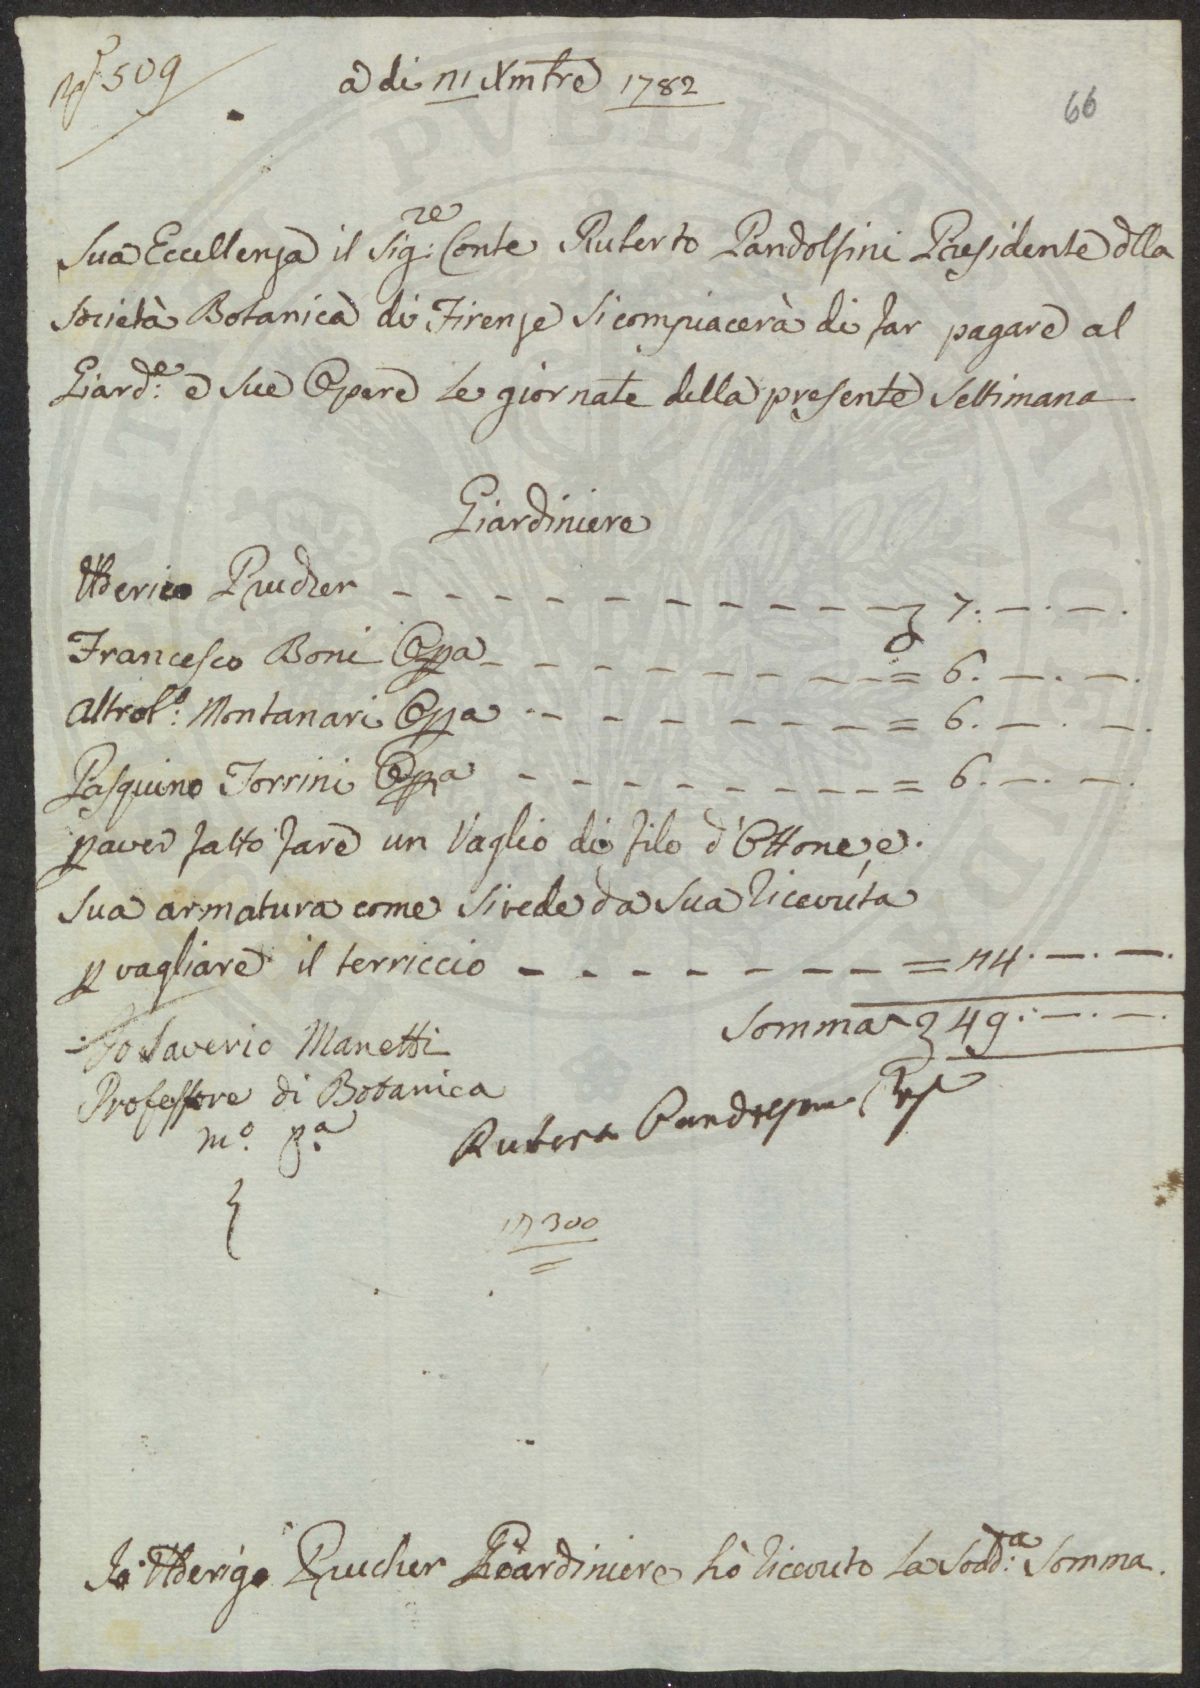 509
66
a di 21 Xmbre 1782
Sua Eccellenza il Sig:re Conte Ruberto Pandolfini Presidente dlla
Società Botanica di Firenze Si compiacerà di far pagare al
Giard:e e Sue Opere le giornate della presente Settimana
Giardiniere
Ulderico Prucher 7. —. —.
Francesco Boni Opa = 6. —. —.
Montanari Opa = 6. —. —.
Pasquino Torrini Opa = 6. —. —.
p aver fatto fare un Vaglio di filo d'Ottone, e
Sua armatura come Si vede da Sua Ricevuta
p vagliare il terriccio = 24. —. —.
Somma 49. —. —.
Io Saverio Manetti
Professore di Botanica
mo. pa.
Ruberto Pandolfini
300
Io Ulderigo Prucher Giardiniere hò Ricevuto La Sodd:a Somma.